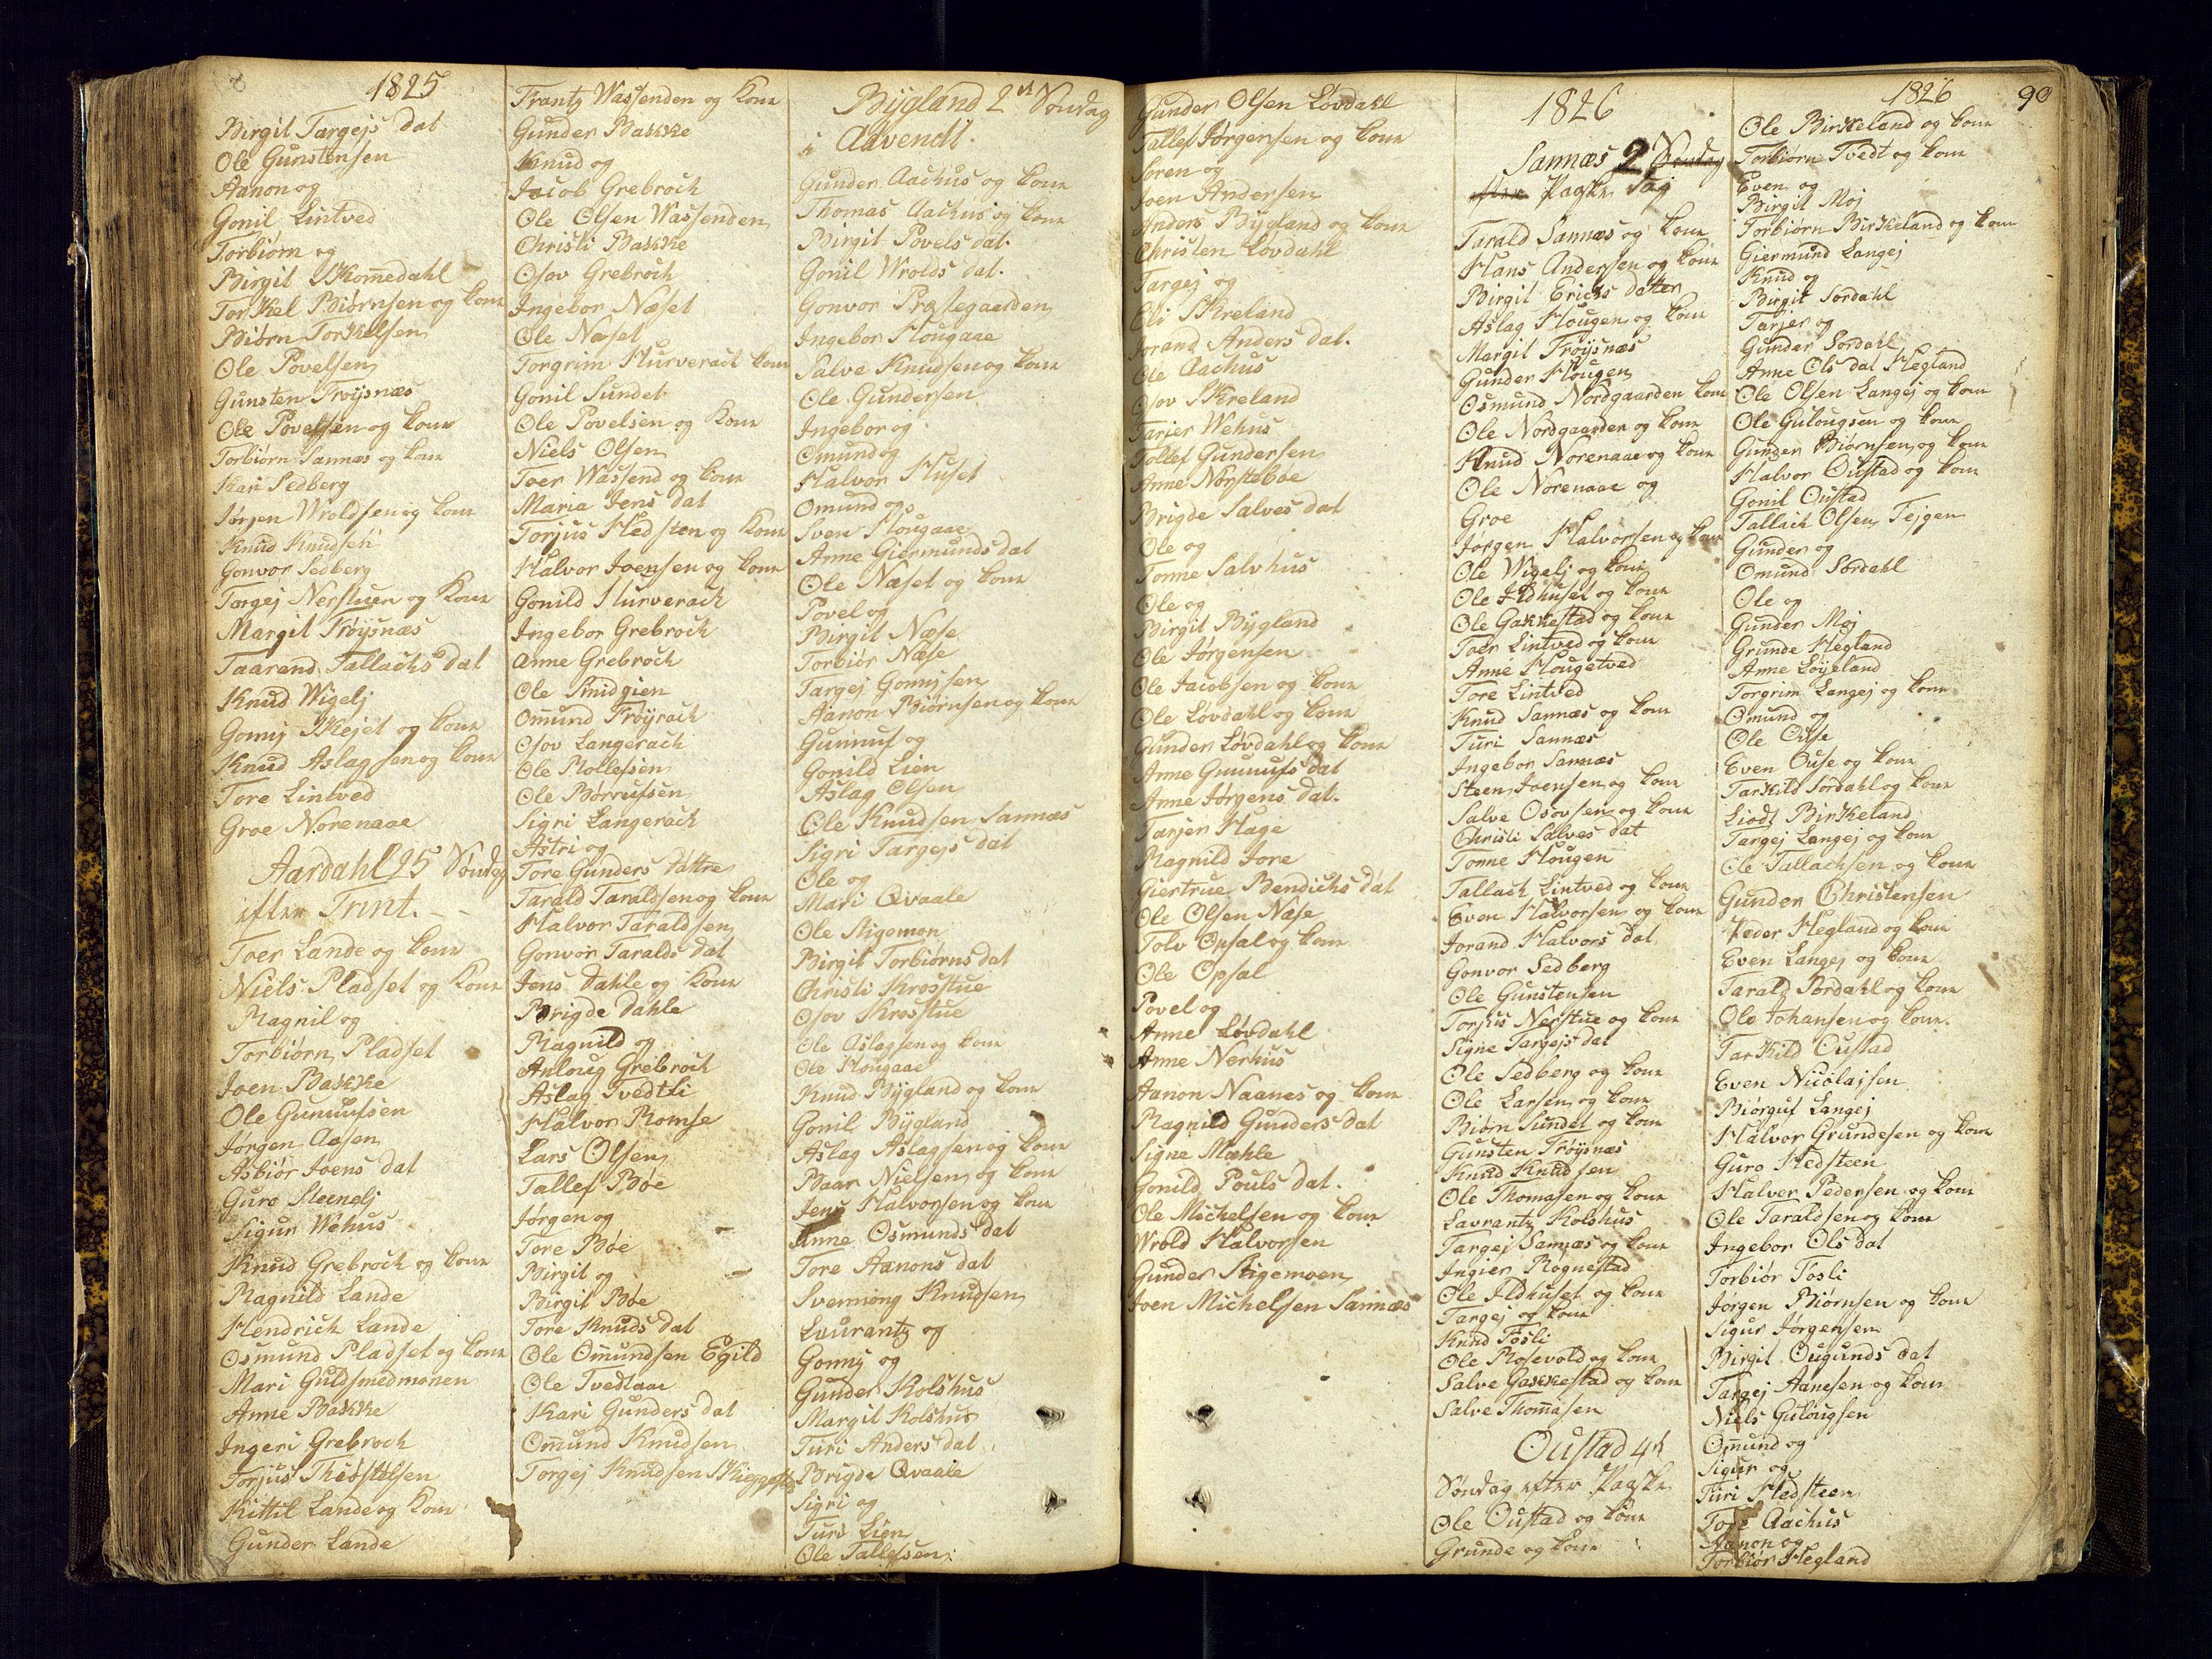 1825
Birgit Targejs dat
Ole Gunstensen
Aanon og
Gonil Lintved
Torbiørn og
Birgit Skomedahl
Torkel Biørnsen og kone
Biørn Torkelsen
Ole Povelsen
Gunsten Frøysnæs
Ole Povelsen og kone
Torbiørn Sannæs og kone
Kari Sedberg
Jørgen Wroldsen og kone
Knud Knudsen
Gonvor Sedberg
Torgej Nerstuen og Kone
Margit Frøysnæs
Taarand Tallachs dat
Knud Wigelj
Gonny Skejet og kone
Knud Aslagsen og kone
Tore Lintved
Groe Norenaae
Aardahl 25 Søndag
efter Trint.
Toer Lande og kone
Niels Pladset og Kone
Magnil og
Torbiørn Pladset
Joen Bakke
Ole Gunuufsen
Jørgen Aasen
Asbiør Joens dat
Guro Steenelj
Sigur Wehus
Knud Grebrock og kone
Magnild Lande
Hendrich Lande
Osmund Pladset og kone
Mari Guldsmedmonen
Anne Bakke
Ingeri Grebroch
Torjus Thiøstelsen
Kittil Lande og Kone
Gunder Lande
Frantz Wassenden og Kone
Gunder Bakke
Knud og
Jacob Grebroch
Ole Olsen Wassenden
Christi Bakke
Osov Grebroch
Ingebor Næset
Ole Næset
Torgrim Hurverach kone
Gonil Sundet
Ole Povelsen og Kone
Niels Olsen
Toer Wassend og kone
Maria Jens dat
Torjus Hedsten og Kone
Halvor Joensen og kone
Gonild Hurverach
Ingebor Grebroch
Anne Grebroch
Ole Smidgien
Omund Frøyrach
Osov Langerach
Ole Rollefsen
Ole Børreufsen
Sigri Langerach
Astri og
Tore Gunders døttre
Tarald Taraldsen og kone
Halvor Taraldsen
Gonvor Taralds dat
Jens Dahle og Kone
Brigde Dahle
Magnild og
Anloug Grebroch
Aslag Tvedtli
Halvor Romse
Lars Olsen
Tallef Bøe
Jørgen og
Tore Bøe
Birgit og
Birgit Bøe
Tore Knuds dat
Ole Omundsen Egild
Ole Tvedtaae
Kari Gunders dat
Omund Knudsen
Torgej Knudsen
Bygland 2de Søndag
i Advendt.
Gunder Aachus og kone
Thomas Aachus og kone
Birgit Povels dat.
Gonil Wrolds dat.
Gonvor Præstegaarden
Ingebor Hougaae
Salve Knudsen og kone
Ole Gundersen
Ingebor og
Omund og
Halvor Huset
Omund og
Sven Hougaae
Anne Giermunds dat
Ole Næset og kone
Povel og
Birgit Næse
Torbiør Næse
Targej Gonnysen
Aanon Biørnsen og kone
Gunnuf og
Gonild Lien
Aslag Olsen
Ole Knudsen Sannæs
Sigri Targejs dat
Ole og
Mari Qvaale
Ole Stigemon
Birgit Torbiørns dat
Christi Krosstue
Osov Krosstue
Ole Aslagsen og kone
Ole Hougaae
Knud Bygland og kone
Gonil Bygland
Aslag Aslagsen og kone
Baar Nielsen og kone
Jens Halvorsen og kone
Anne Osmunds dat
Tore Aanons dat
Svennong Knudsen
Laurantz og
Gonny og
Gunder Kolshus
Margit Kolshus
Turi Anders dat.
Brigde Qvaale
Sigri og
Turi Lien
Ole Tallefsen
Gunder Olsen Løvdahl
Tallef Jørgensen og kone
Søren og
Joen Andersen
Anders Bygland og kone
Christen Løvdahl
Targej og
Eli Skreland
Jorand Anders dat.
Ole Aachus
Osov Skreland
Tarjer Wehus
Tollef Gundersen
Anne Nørstebøe
Brigde Salves dat
Ole og
Tonne Salvhus
Ole og
Birgit Bygland
Ole Jørgensen
Ole Jacobsen og kone
Ole Løvdahl og kone
Gunder Løvdahl og kone
Anne Gunnufs dat
Anne Jørgens dat.
Tarjer Hage
Magnild Jore
Giertrue Bendichs dat
Ole Olsen Næse
Tolv Opsal og kone
Ole Opsal
Povel og
Anne Løvdahl
Anne Nerhus
Aanon Naanes og kone
Magnild Gunders dat
Signe Mæhle
Gonild Pouls dat.
Ole Michelsen og kone
Wrold Halvorsen
Gunder Stigemoen
Joen Michelsen Sannæs
1826
Sannæs 2 Søndag
efter Paaske Dag
Tarald Sannæs og kone
Hans Andersen og kone
Birgit Erichs datter
Aslag Hougen og kone
Margit Frøysnæs
Gunder Hougen
Osmund Nordgaarden kone
Ole Nordgaarden og kone
Knud Norenaae og kone
Ole Norenaae og
Groe
Jørgen Halvorsen og kone
Ole Wigelj og kone
Ole Ildhuset og kone
Ole Gakkestad og kone
Toer Lintved og kone
Anne Hougetved
Tore Lintved
Knud Sannæs og kone
Turi Sannæs
Ingebor Sannæs
Steen Joensen og kone
Salve Osovsen og kone
Christi Salves dat
Tonne Hougen
Tallach Lintved og kone
Even Halvorsen og kone
Jorand Halvors dat
Gonvor Sedberg
Ole Gunstensen
Torjus Nerstue og kone
Signe Targejs dat
Ole Sedberg og kone
Ole Larsen og kone
Biørn Sundet og kone
Gunsten Frøysnæs
Knud Knudsen
Ole Thomasen og kone
Lavrantz Kolshus
Targej Sannæs og kone
Ingier Rognestad
Ole Ildhuset og kone
Targej og kone
Knud Fosli
Ole Rosevold og kone
Salve Gakkestad og kone
Salve Thomasen
Oustad 4de
Søndag efter Paaske
Ole Oustad og kone
Grunde og kone
1826
90
Ole Birkeland og kone
Torbiørn Tvedt og kone
Even og
Birgit Moj
Torbiørn Birkeland og kone
Giermund Langej
Knud og
Birgit Sordahl
Tarjer og
Gunder Sordahl
Anne Ols dat Hegland
Ole Olsen Langej og kone
Ole Gulougsen og kone
Gunder Biørnsen og kone
Halvor Oustad og kone
Gonil Oustad
Tallach Olsen Tejgen
Gunder og
Omund Sordahl
Ole og
Gunder Moj
Grunde Hegland
Anne Løyeland
Torgrim Langej og kone
Omund og
Ole Ouse
Even Ouse og kone
Tarkild Sordahl og kone
Liodt Birkeland
Targej Langej og kone
Ole Tallachsen og kone
Gunder Christensen
Peder Hegland og kone
Even Langej og kone
Tarald Sordahl og kone
Ole Johansen og kone.
Tarkild Oustad
Even Nicolajsen
Biørguf Langej
Halvor Grundesen og kone
Guro Hedsteen
Halver Pedersen og kone
Ole Taraldsen og kone
Ingebor Ols dat
Torbiør Fosli
Jørgen Biørnsen og kone
Sigur Jørgensen
Birgit Ougunds dat
Targej Aanesen og kone
Niels Gulougsen
Omund og
Sigur og
Turi Hedsteen
Tore Aachus
Aanon og
Torbiør Hegland